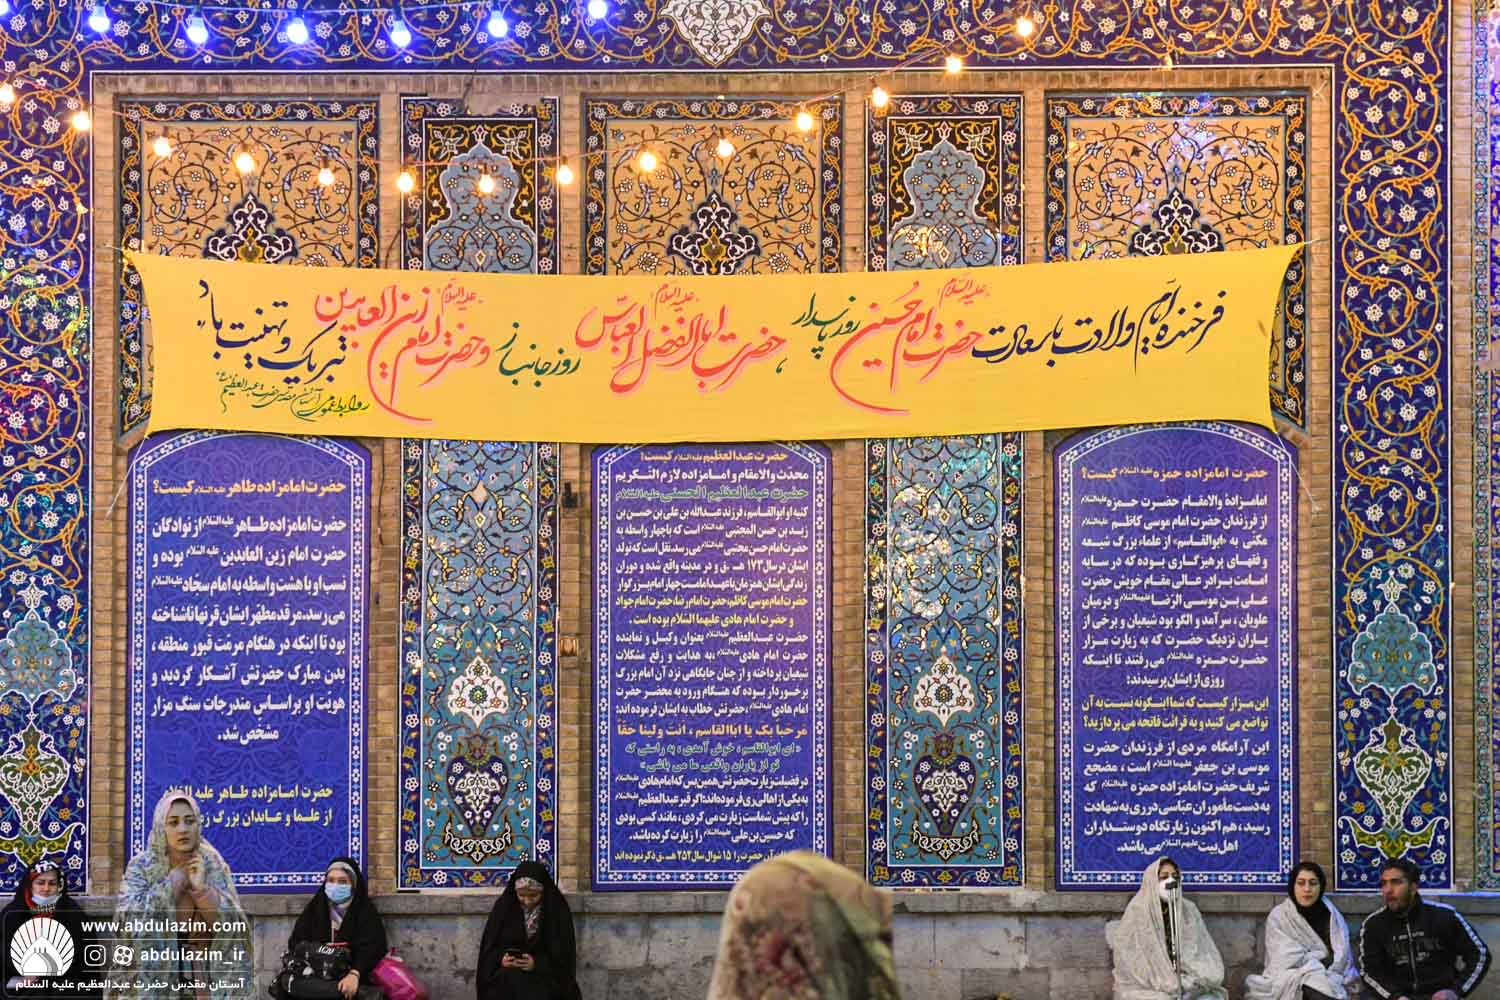 فرخنده ایّام ولادت با سعادت حضرت امام حُسین علیه السّلام روز پاسدار ، حضرت اباالفضل العباسّ علیه السّلام روز جانباز و حضرت امام زین العابدین علیه السّلام تبریک و تهنیت باد
روابط عمومی آستان مقدس حضرت عبدالعظیم
حضرت امامزاده حمزه علیه السّلام کیست؟
امامزادۀ والامقام حضرت حمزه علیه السّلام
از فرزندان حضرت امام موسی کاظم علیه السّلام
مکنی به «ابوالقاسم» از علماء بزرگ شیعه
و فقهای پرهیزگاری بوده که در سایه
امامت برادر عالی مقام خویش حضرت
علی بن موسی الرّضا علیهما السّلام و درمیان
علویان ، سرآمد و الگو بود شیعیان و برخی از
یاران نزدیک حضرت که به زیارت مزار
حضرت حمزه علیه السّلام می رفتند تا اینکه
روزی از ایشان پرسیدند:
این مزار کیست که شما اینگونه نسبت به آن
تواضع می کنید و به قرائت فاتحه می پردازید؟
این آرامگاه مردی از فرزندان حضرت
موسی بن جعفر علیهما السّلام است ، مضجع
شریف حضرت امامزاده حمزه علیه السّلام که
به دست مأموران عباسی در ری به شهادت
رسید ، هم اکنون زیارتگاه دوستداران
اهل بیت علیهم السّلام می باشد.
حضرت عبدالعظیم علیه السّلام کیست؟
محدّث والامقام و امامزاده لازم التّکریم
حضرت عبدالعظیم الحسنی علیه السّلام
کنیه او ابوالقاسم، فرزند عبدالله بن علی بن حسن بن
زید بن حسن المجتبی علیه السّلام است که با چهار واسطه به
حضرت امام حسن مجتبی علیه السّلام می رسد، نقل است که تولد
ایشان در سال ۱۷۳ هـ.ق و در مدینه واقع شده و دوران
زندگی ایشان همزمان با عهد امامت چهار امام بزرگوار
حضرت امام موسی کاظم، حضرت امام رضا، حضرت امام جواد
و حضرت امام هادی علیهما السّلام بوده است .
حضرت عبدالعظیم علیه السّلام بعنوان وکیل و نماینده
حضرت امام هادی علیه السّلام ،به هدایت و رفع مشکلات
شیعیان پرداخته و از چنان جایگاهی نزد آن امام بزرگ
برخوردار بوده که هنگام ورود به محضر حضرت
امام هادی علیه السّلام حضرتش خطاب به ایشان فرموده اند:
مرحباً بک یا اباالقاسم ، انت ولینا حقاً
« ای ابوالقاسم ، خوش آمدی ، به راستی که
تو از یاران واقعی ما می باشی »
در فضیلت زیارت حضرتش همین بس که امام هادی علیه السّلام
به یکی از اهالی ری فرموده اند:اگر قبر عبدالعظیم علیه السّلام
را که پیش شماست زیارت می کردی ، مانند کسی بودی
که حسین بن علی علیهما السّلام را زیارت کرده باشد.
آن حضرت را ۱۵ شوال سال ۲۵۲ هـ.ق ذکر نموده اند
حضرت امامزاده طاهر علیه السّلام کیست؟
حضرت امامزاده طاهر علیه السّلام از نوادگان
حضرت امام زین العابدین علیه السّلام بوده و
نسب او با هشت واسطه به امام سجاد علیه السّلام
می رسد. مرقد مطهّر ایشان قرنها ناشناخته
بود تا اینکه در هنگام مرمّت قبور منطقه ،
بدن مبارک حضرتش آشکار گردید و
هویّت او براساس مندرجات سنگ مزار
مشخّص شد.
حضرت امامزاده طاهر علیه السّلام
از علما و عابدان بزرگ
www.abdulazim.com
abdulazim_ir
آستان مقدس حضرت عبدالعظیم علیه السلام